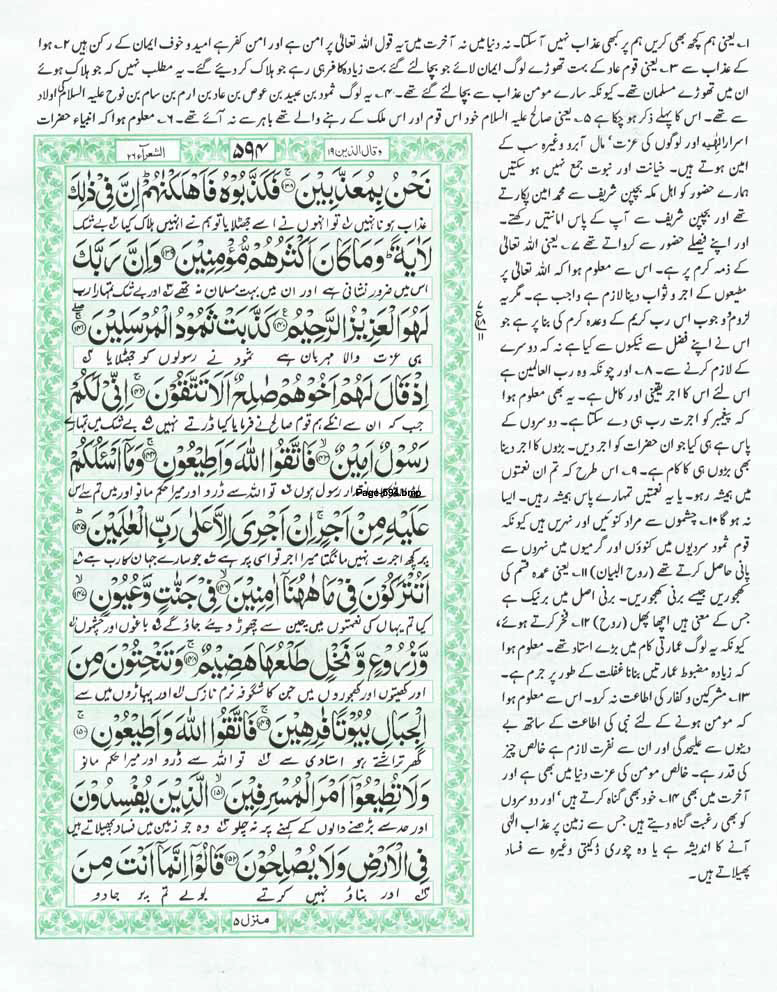 ۱۔ یعنی ہم کچھ بھی کریں ہم پر کبھی عذاب نہیں آ سکتا۔ نہ دنیا میں نہ آخرت میں۔ یہ قول اللہ تعالیٰ پر امن ہے اور امن کفر ہے امید و خوف ایمان کے رکن ہیں ۲۔ ہوا
کے عذاب سے ۳۔ یعنی قوم عاد کے بہت تھوڑے لوگ ایمان لائے جو بچا لئے گئے بہت زیادہ کافر ہی رہے جو ہلاک کر دیئے گئے۔ یہ مطلب نہیں کہ جو ہلاک ہوئے
ان میں تھوڑے مسلمان تھے۔ کیونکہ سارے مومن عذاب سے بچا لئے گئے تھے۔ ۴۔ یہ لوگ ثمود بن عبید بن عوص بن عاد بن ارم بن سام بن نوح علیہ السلام کی اولاد
سے تھے۔ اس کا پہلے ذکر ہو چکا ہے ۵۔ یعنی صالح علیہ السلام خود اس قوم اور اس ملک کے رہنے والے تھے باہر سے نہ آئے تھے۔ ۶۔ معلوم ہوا کہ انبیاء حضرات
اسرار الہٰیہ اور لوگوں کی عزت‘ مال آبرو وغیرہ سب کے
امین ہوتے ہیں۔ خیانت اور نبوت جمع نہیں ہو سکتیں
ہمارے حضور کو اہل مکہ بچپن شریف سے محمد امین پکارتے
تھے اور بچپن شریف سے آپ کے پاس امانتیں رکھتے۔
اور اپنے فیصلے حضور سے کرواتے تھے ۷۔ یعنی اللہ تعالیٰ
کے ذمہ کرم پر ہے۔ اس سے معلوم ہوا کہ اللہ تعالیٰ پر
مطیعوں کے اجر و ثواب دینا لازم ہے واجب ہے۔ مگر یہ
لزوم و وجوب اس رب کریم کے وعدہ کرم کی بنا پر ہے جو
اس نے اپنے فضل سے نیکوں سے کیا ہے نہ کہ دوسرے
کے لازم کرنے سے۔ ۸۔ اور چونکہ وہ رب العالمین ہے
اس لئے اس کا اجر یقینی اور کامل ہے۔ یہ بھی معلوم ہوا
کہ پیغمبر کو اجرت رب ہی دے سکتا ہے۔ دوسروں کے
پاس ہے ہی کیا جو ان حضرات کو اجر دیں۔ بڑوں کا اجر دینا
بھی بڑوں ہی کا کام ہے۔ ۹۔ اس طرح کہ تم ان نعمتوں
میں ہمیشہ رہو۔ یا یہ نعمتیں تمہارے پاس ہمیشہ رہیں۔ ایسا
نہ ہو گا ۱۰۔ چشموں سے مراد کنوئیں اور نہریں ہیں کیونکہ
قوم ثمود سردیوں میں کنوؤں اور گرمیوں میں نہروں سے
پانی حاصل کرتے تھے (روح البیان) ۱۱۔ یعنی عمدہ قسم کی
کھجوریں جیسے برنی کھجوریں۔ برنی اصل میں برنیک ہے
جس کے معنی ہیں اچھا پھل (روح) ۱۲۔ فخر کرتے ہوئے،
کیونکہ یہ لوگ عمارتی کام میں بڑے استاد تھے۔ معلوم ہوا
کہ زیادہ مضبوط عمارتیں بنانا غفلت کے طور پر جرم ہے۔
۱۳۔ مشرکین و کفار کی اطاعت نہ کرو۔ اس سے معلوم ہوا
کہ مومن ہونے کے لئے نبی کی اطاعت کے ساتھ بے
دینوں سے علیحدگی اور ان سے نفرت لازم ہے خالص چیز
کی قدر ہے۔ خالص مومن کی عزت دنیا میں بھی ہے اور
آخرت میں بھی ۱۴۔ خود بھی گناہ کرتے ہیں‘ اور دوسروں
کو بھی رغبت گناہ دیتے ہیں جس سے زمین پر عذاب الٰہی
آنے کا اندیشہ ہے یا وہ چوری ڈکیتی وغیرہ سے فساد
پھیلاتے ہیں۔
وقال الذین ۱۹ ۵۹۴ الشعرآء ۲۶
نَحْنُ بِمُعَذَّبِيْنَ ﴿۱۳۸﴾ فَكَذَّبُوْهُ فَاَهْلَكْنٰهُمْ اِنَّ فِيْ ذٰلِكَ
عذاب ہونا نہیں تو انہوں نے اسے جھٹلایا تو ہم نے انہیں ہلاک کیا بے شک
لَاٰيَةً وَمَا كَانَ اَكْثَرُهُمْ مُّؤْمِنِيْنَ ﴿۱۳۹﴾ وَاِنَّ رَبَّكَ
اس میں ضرور نشانی ہے اور ان میں بہت مسلمان نہ تھے اور بے شک تمہارا رب
لَهُوَ الْعَزِيْزُ الرَّحِيْمُ ﴿۱۴۰﴾ كَذَّبَتْ ثَمُوْدُ الْمُرْسَلِيْنَ ﴿۱۴۱﴾
ہی عزت والا مہربان ہے ثمود نے رسولوں کو جھٹلایا
اِذْ قَالَ لَهُمْ اَخُوْهُمْ صٰلِحٌ اَلَا تَتَّقُوْنَ ﴿۱۴۲﴾ اِنِّيْ لَكُمْ
جب کہ ان سے انکے ہم قوم صالح نے فرمایا کیا ڈرتے نہیں بے شک میں تمہارے
رَسُوْلٌ اَمِيْنٌ ﴿۱۴۳﴾ فَاتَّقُوا اللّٰهَ وَاَطِيْعُوْنِ ﴿۱۴۴﴾ وَمَاۤ اَسْـَٔلُكُمْ
رسول ہوں تو اللہ سے ڈرو اور میرا حکم مانو اور میں تم سے اس
Page-594.bmp
عَلَيْهِ مِنْ اَجْرٍ اِنْ اَجْرِيَ اِلَّا عَلٰى رَبِّ الْعٰلَمِيْنَ ﴿۱۴۵﴾
پر کچھ اجرت نہیں مانگتا میرا اجر تو اسی پر ہے جو سارے جہان کا رب ہے
اَتُتْرَكُوْنَ فِيْ مَا هٰهُنَاۤ اٰمِنِيْنَ ﴿۱۴۶﴾ فِيْ جَنّٰتٍ وَّعُيُوْنٍ ﴿۱۴۷﴾
کیا تم یہاں کی نعمتوں میں چین سے چھوڑ دیئے جاؤ گے باغوں اور چشموں
وَّزُرُوْعٍ وَّنَخْلٍ طَلْعُهَا هَضِيْمٌ ﴿۱۴۸﴾ وَتَنْحِتُوْنَ مِنَ
اور کھیتوں اور کھجوروں میں جن کا شگوفہ نرم نازک اور پہاڑوں میں سے
الْجِبَالِ بُيُوْتًا فٰرِهِيْنَ ﴿۱۴۹﴾ فَاتَّقُوا اللّٰهَ وَاَطِيْعُوْنِ ﴿۱۵۰﴾
گھر تراشتے ہو استادی سے تو اللہ سے ڈرو اور میرا حکم مانو
وَلَا تُطِيْعُوْۤا اَمْرَ الْمُسْرِفِيْنَ ﴿۱۵۱﴾ الَّذِيْنَ يُفْسِدُوْنَ
اور حد سے بڑھنے والوں کے کہنے پر نہ چلو وہ جو زمین میں فساد پھیلاتے ہیں
فِي الْاَرْضِ وَلَا يُصْلِحُوْنَ ﴿۱۵۲﴾ قَالُوْۤا اِنَّمَاۤ اَنْتَ مِنَ
اور بناؤ نہیں کرتے بولے تم پر جادو
منزل ۵